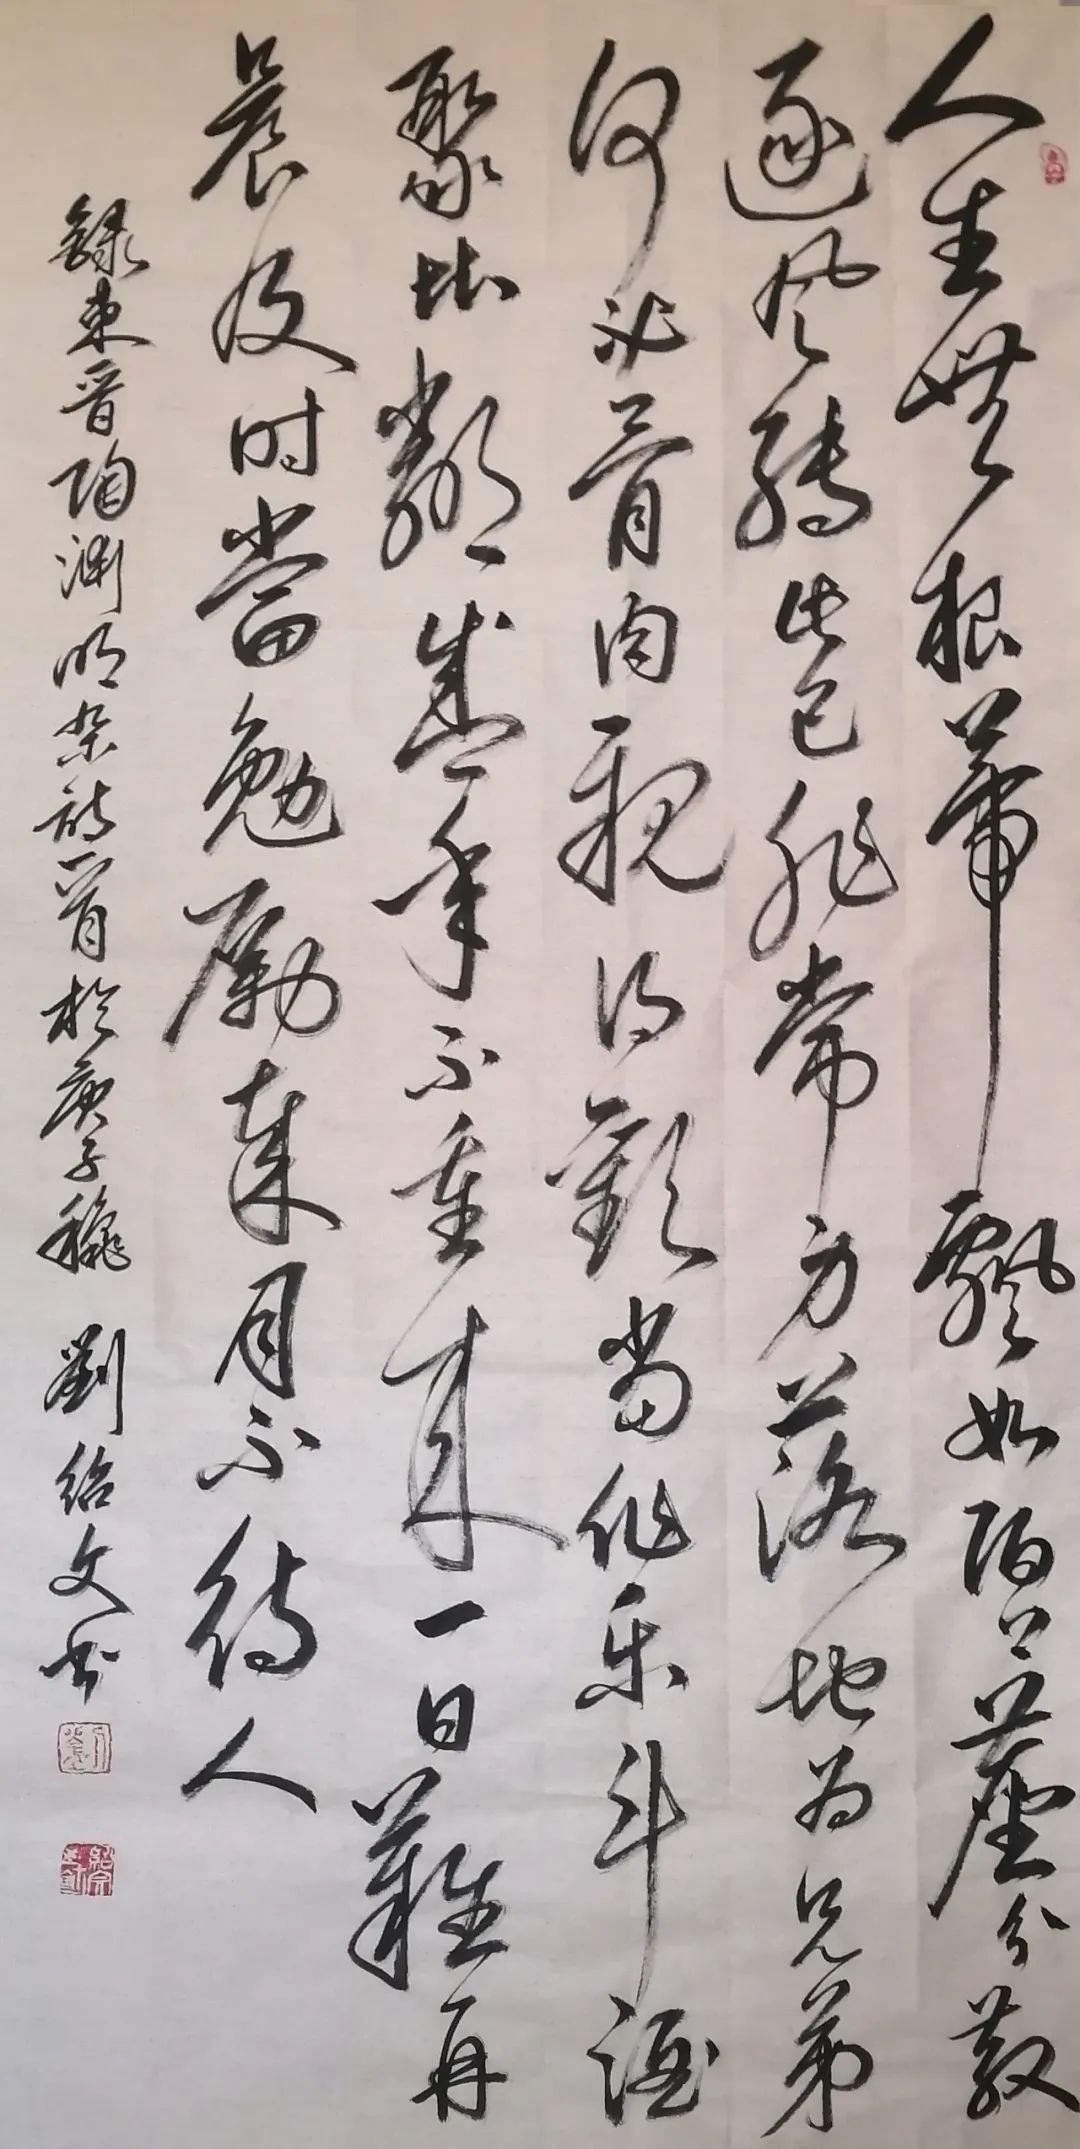 人生無根蒂飄如陌上塵分散
逐风轉此已非常身落地为兄弟
何必骨肉親得歡当作乐斗酒
聚比鄰盛年不重来一日難再
晨及时當勉勵歲月不待人
録東晋陶渊明杂诗一首於庚子穐 劉绍文书